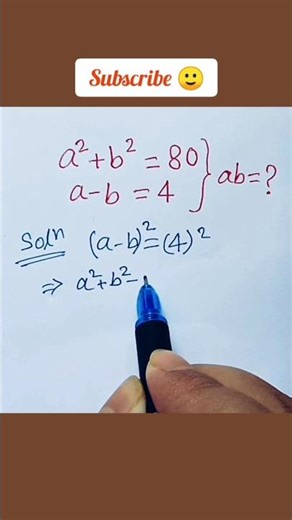 Subscribe 🙂
a²+b² = 80
a-b = 4 } ab=?
Soln (a-b)²=(4)²
⇒ a²+b²-